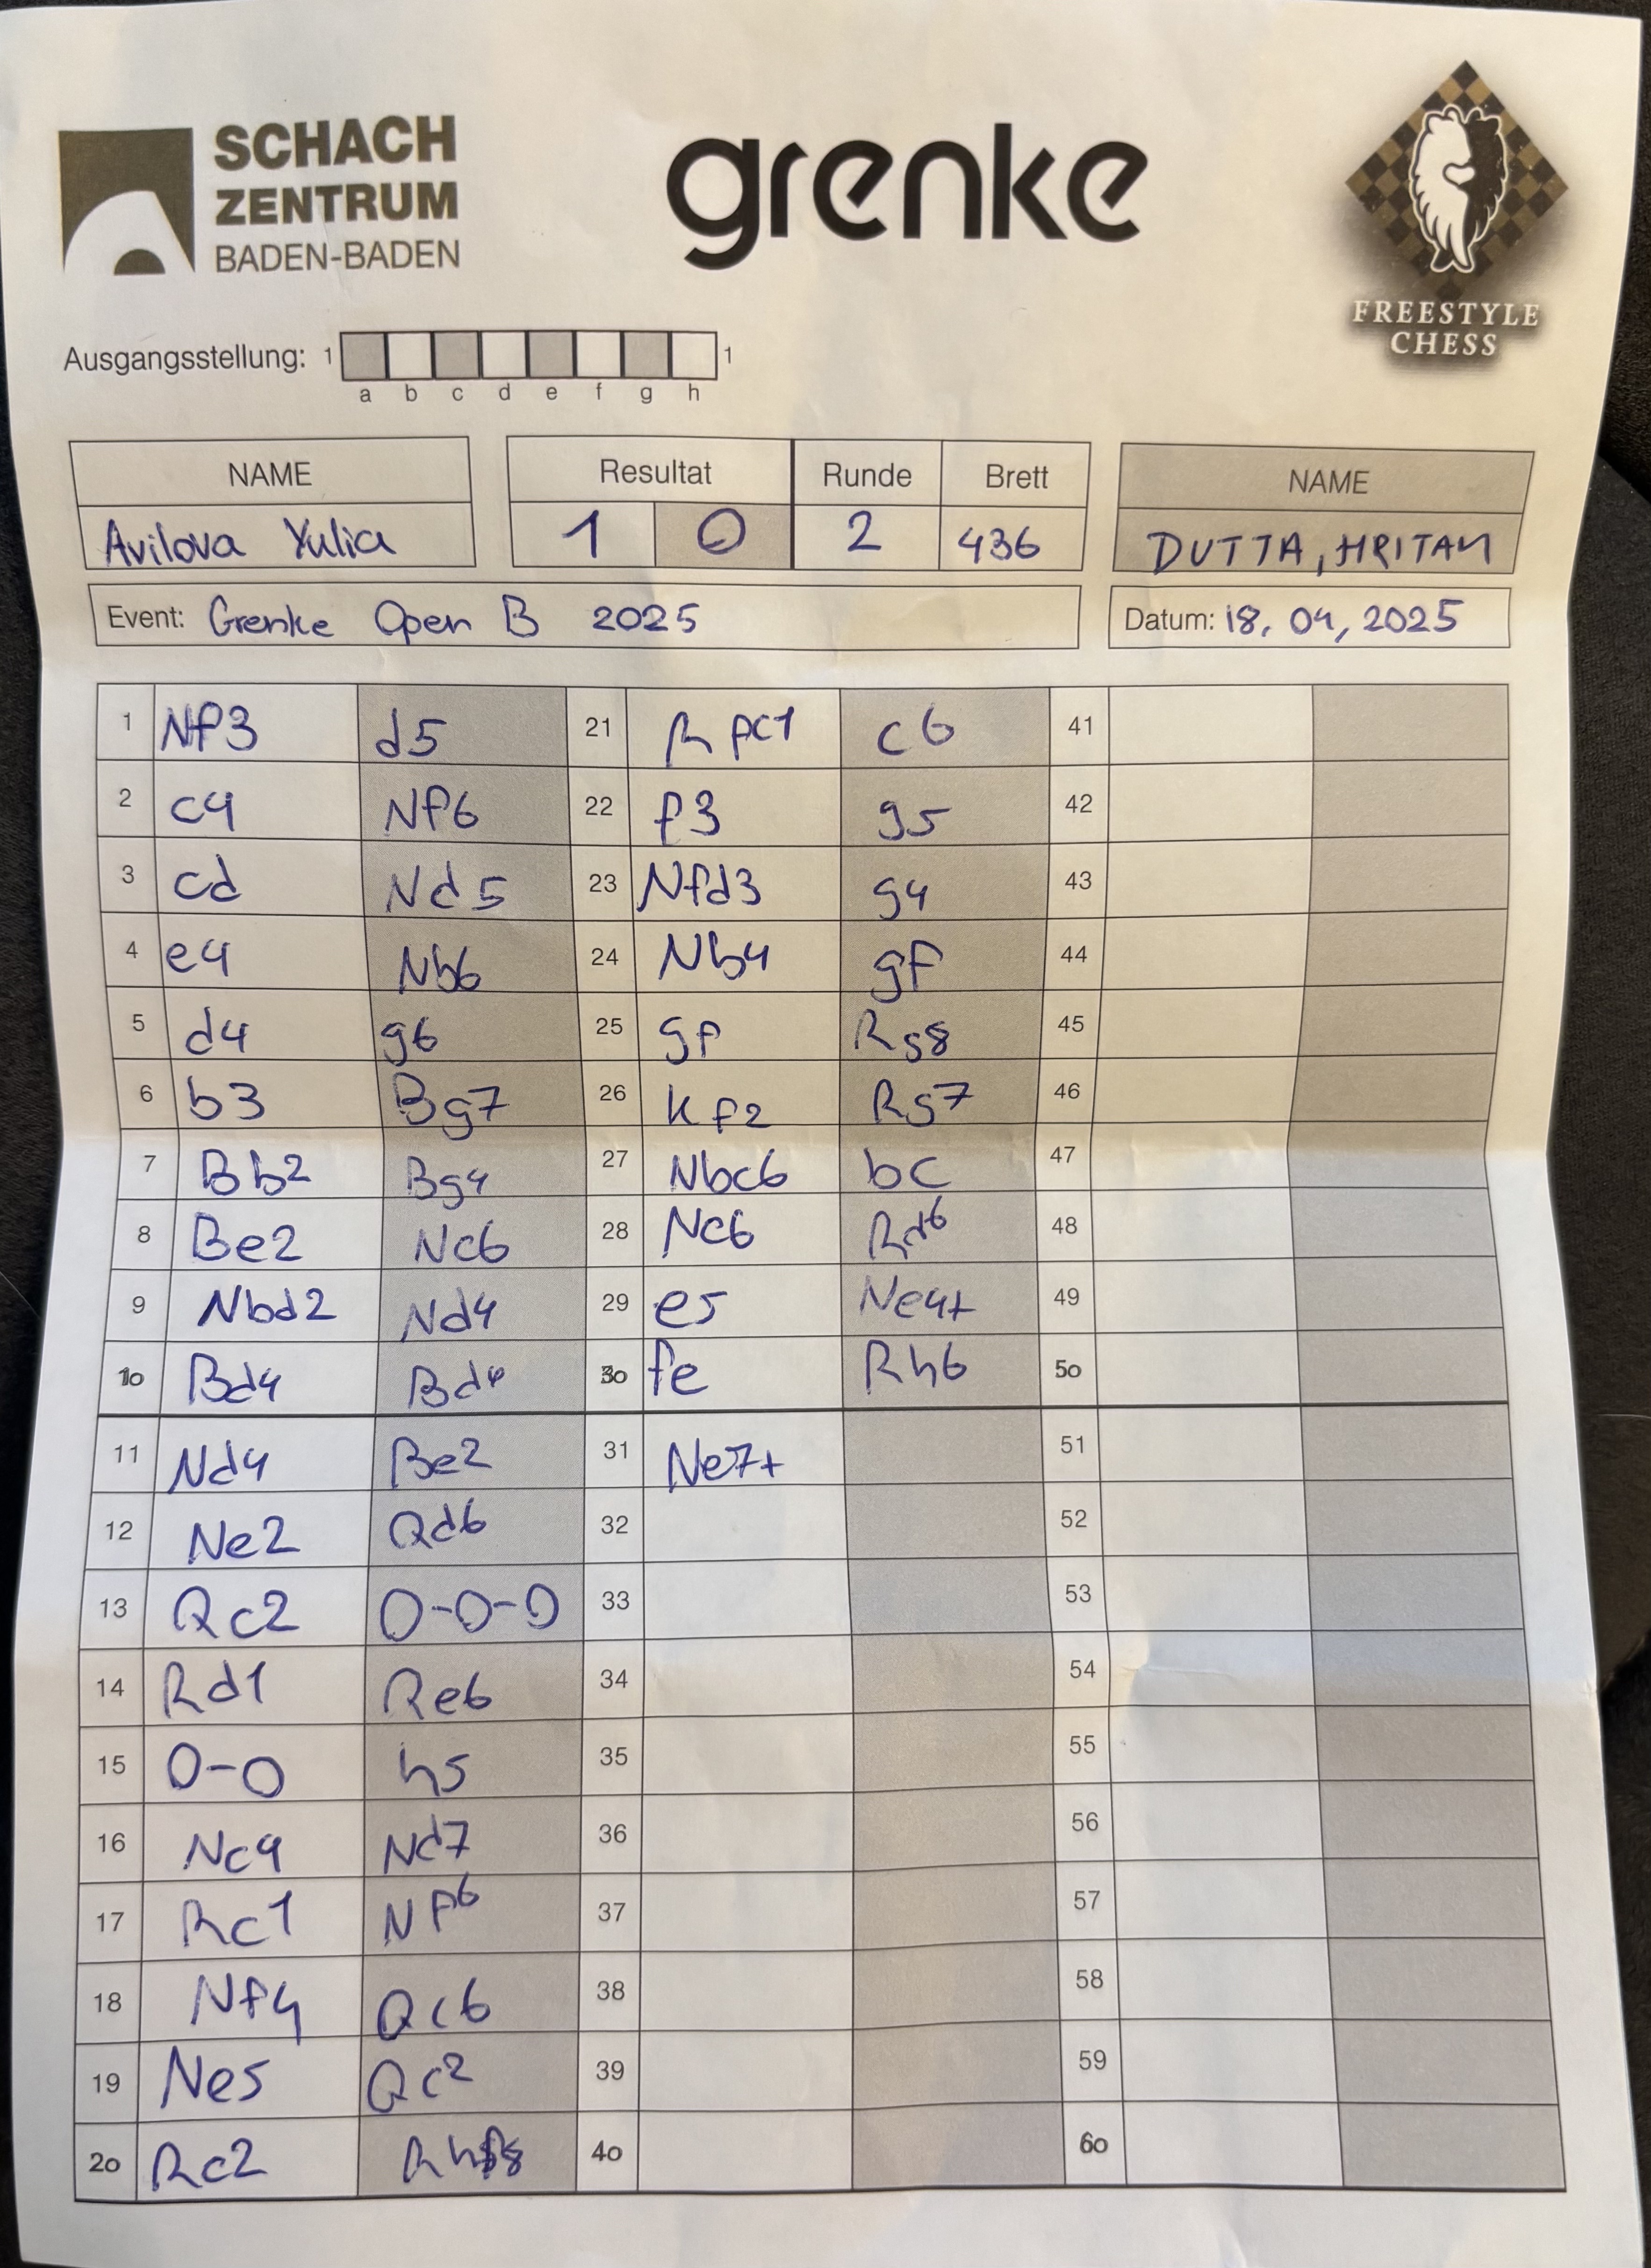 SCHACH
ZENTRUM
BADEN-BADEN
grenke
FREESTYLE
CHESS
Ausgangsstellung: 1 1
a b c d e f g h
NAME Resultat Runde Brett NAME
Avilova Yulia 1 0 2 436 DUTTA, HRITAM
Event: Grenke Open B 2025 Datum: 18. 04, 2025
1 Nf3 d5 21 Rfc1 c6 41
2 c4 Nf6 22 f3 g5 42
3 cd Nd5 23 Nfd3 g4 43
4 e4 Nb6 24 Nb4 gf 44
5 d4 g6 25 gf Rg8 45
6 b3 Bg7 26 Kf2 Rg7 46
7 Bb2 Bg4 27 Nbc6 bc 47
8 Be2 Nc6 28 Nc6 Rd6 48
9 Nbd2 Nd4 29 e5 Ne4+ 49
10 Bd4 Bd4 30 fe Rh6 50
11 Nd4 Be2 31 Ne7+ 51
12 Ne2 Qd6 32 52
13 Qc2 0-0-0 33 53
14 Rd1 Qe6 34 54
15 0-0 h5 35 55
16 Nc4 Nd7 36 56
17 Rc1 Nf6 37 57
18 Nf4 Qc6 38 58
19 Ne5 Qc2 39 59
20 Rc2 40 60